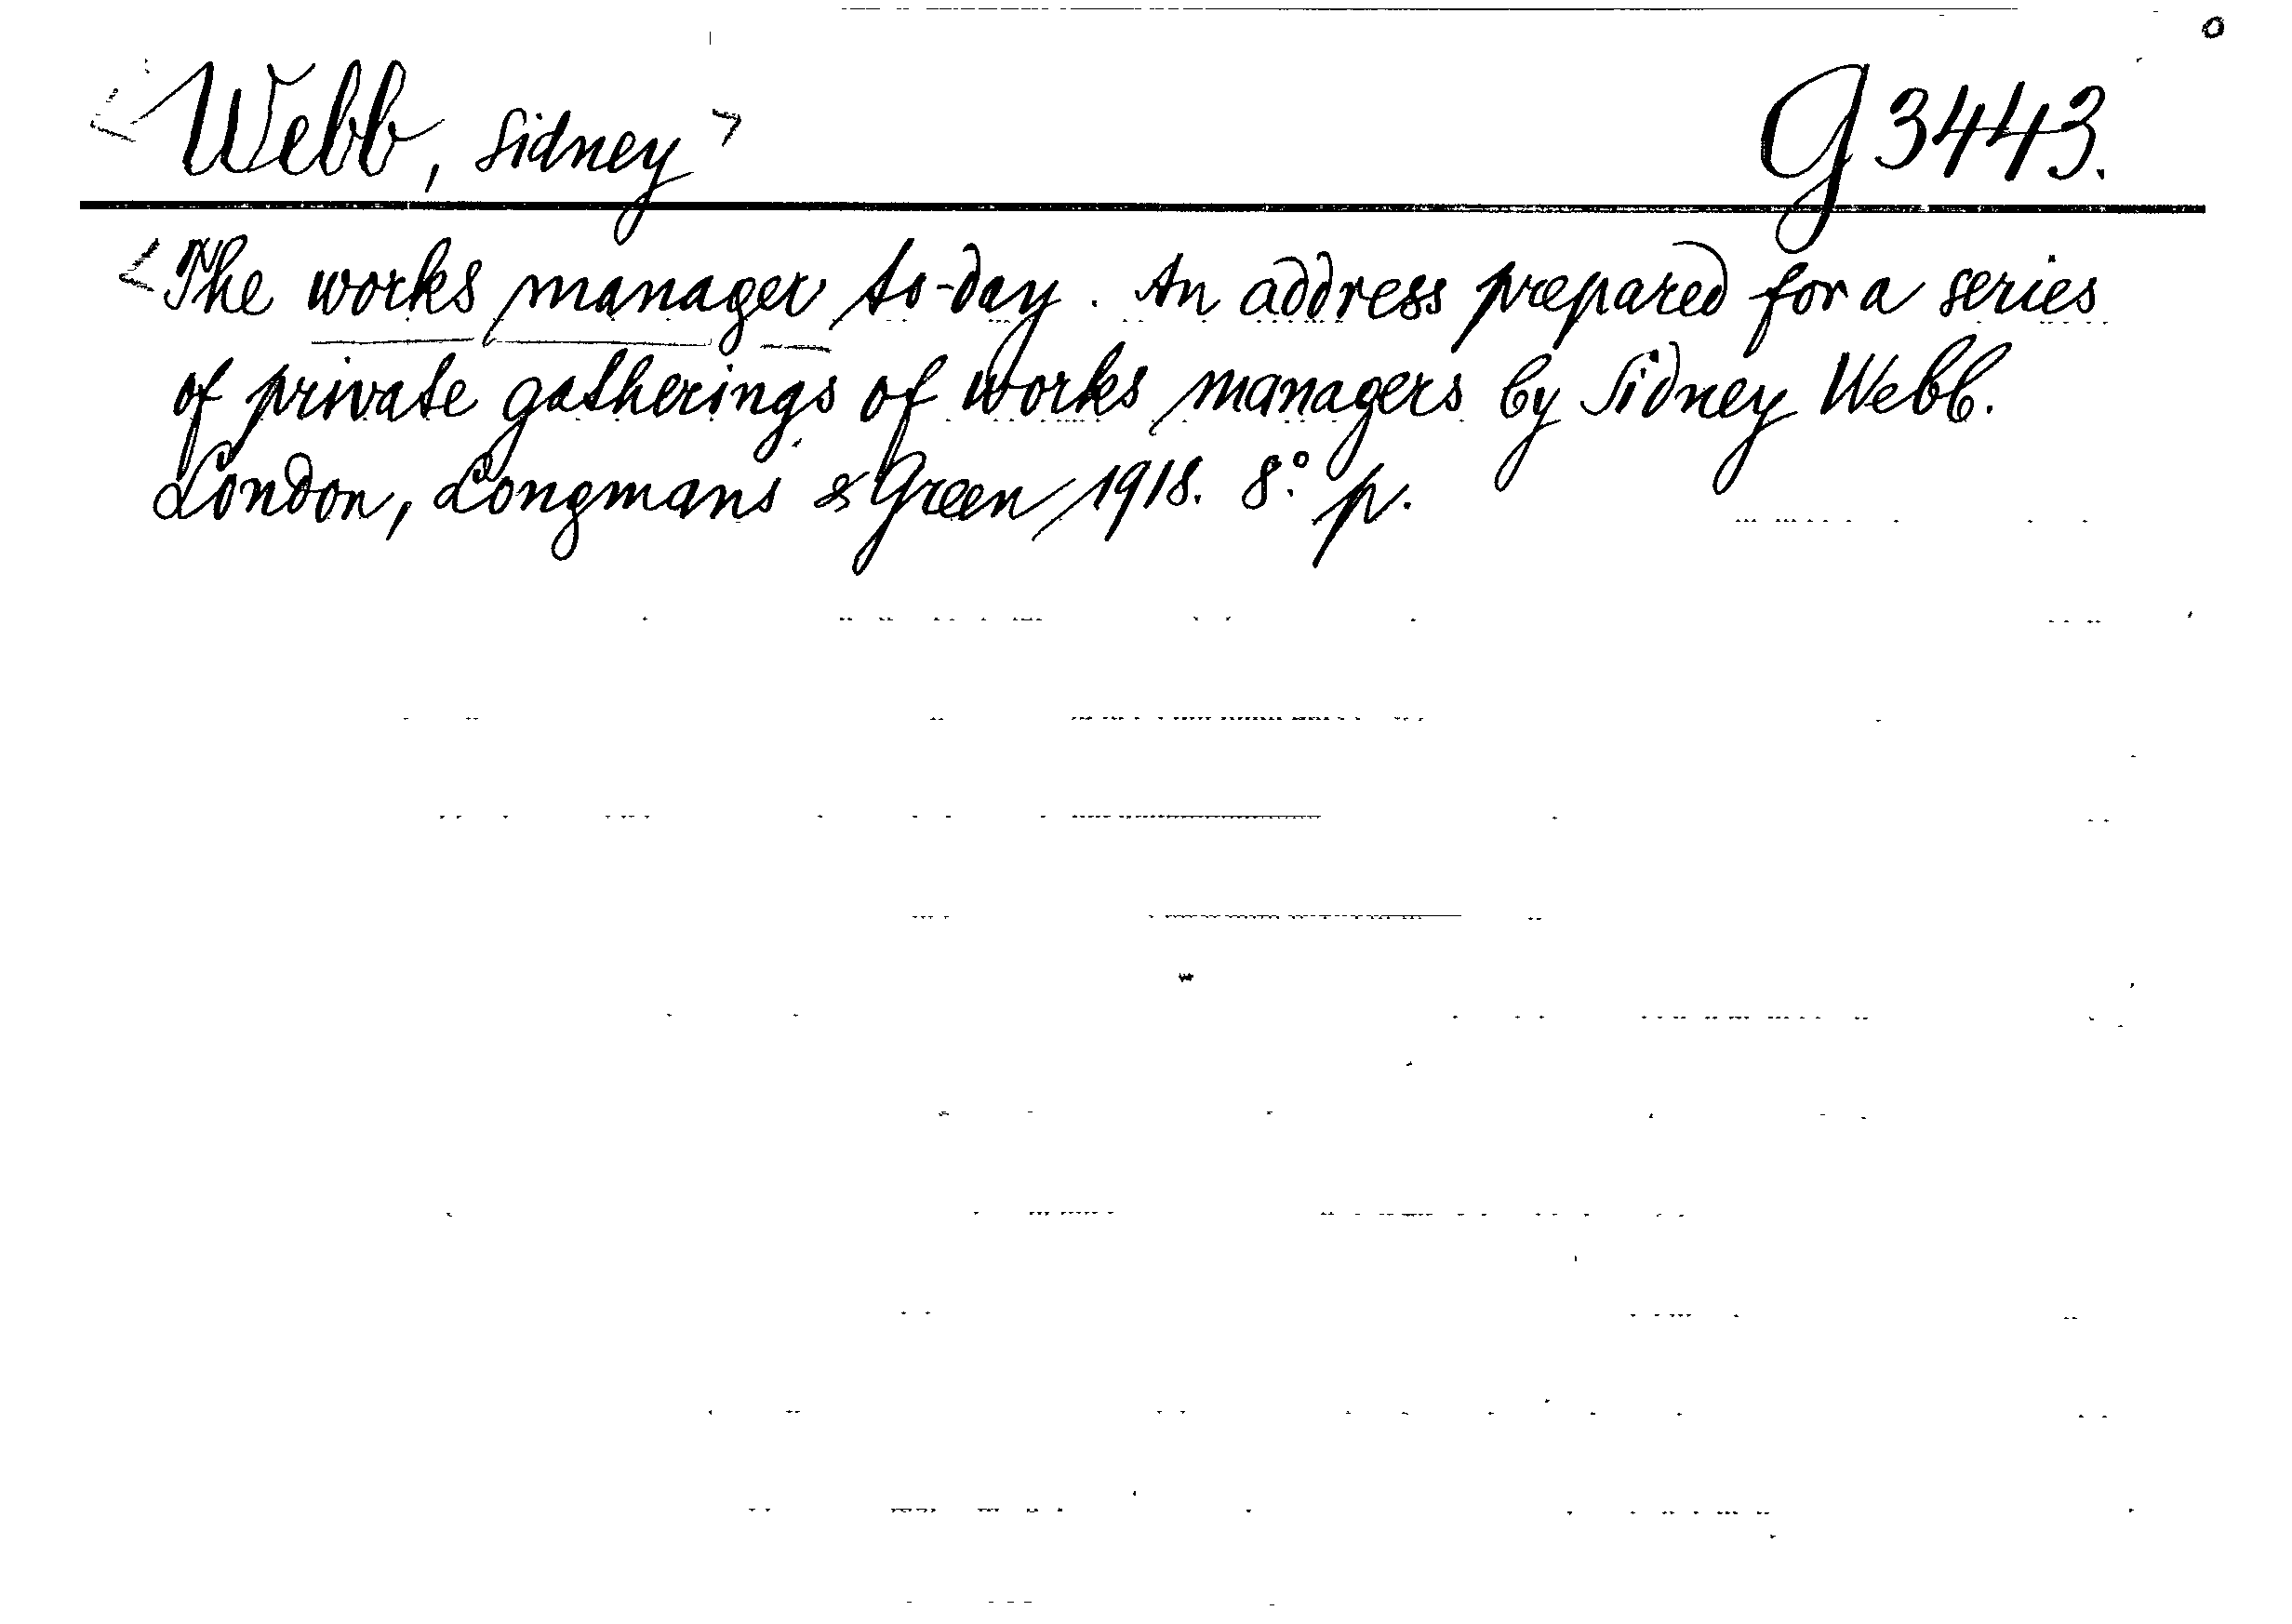 <Webb, Sidney> G 3443.
<The works manager to-day. An address prepared for a series
of private gatherings of works managers by Sidney Webb.
London, Longmans & Green 1918. 8° p.